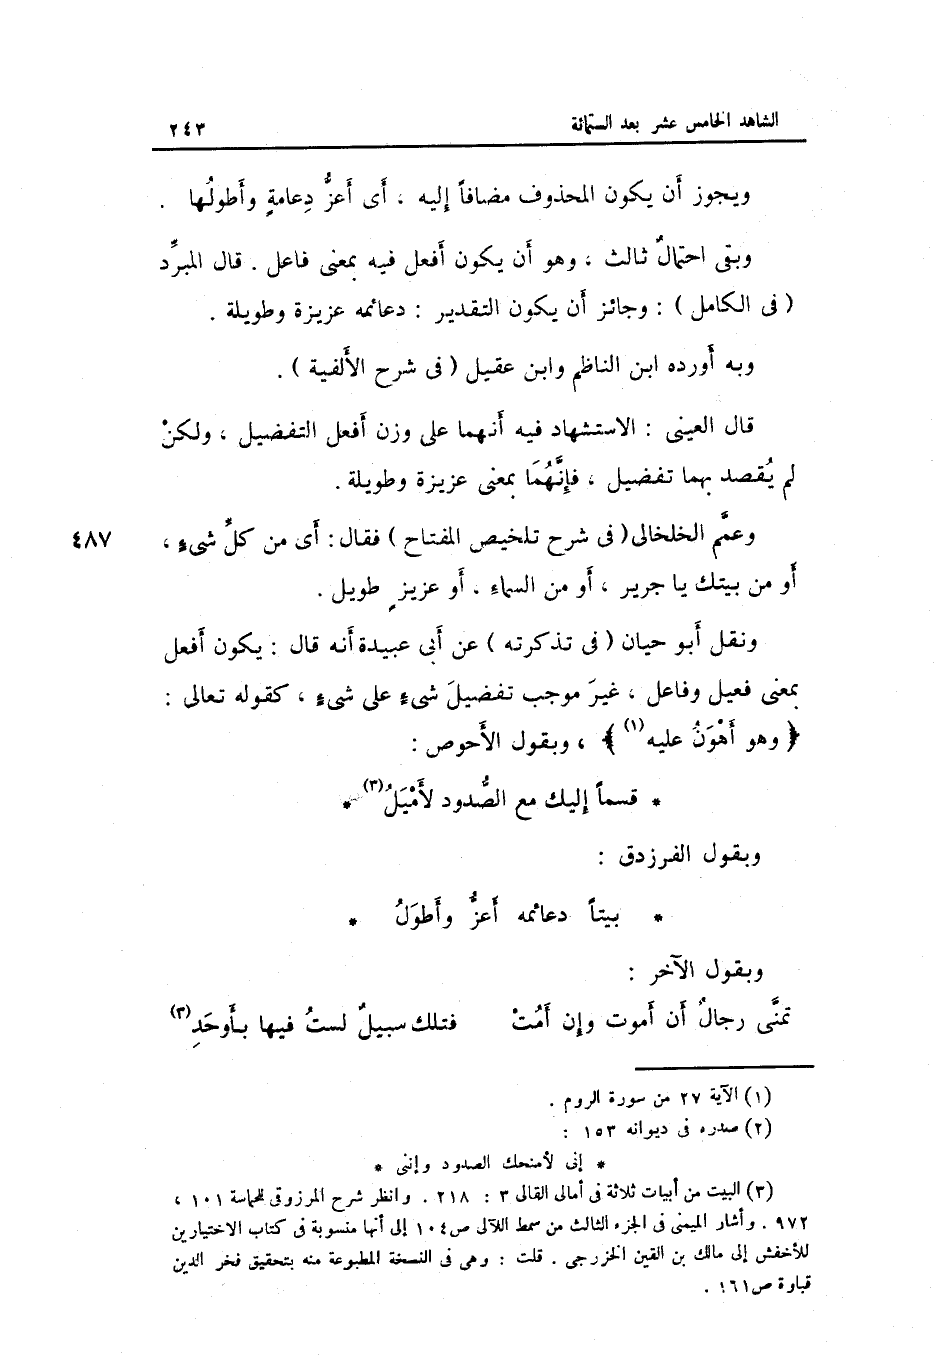 الشاهد الخامس عشر بعد الستمائة ٢٤٣
ويجوز أَن يكون المحذوف مضافاً إليه ، أَى أَعزُّ دِعامةٍ وأَطولُها .
وبقى احتمالٌ ثالث ، وهو أن يكون أفعل فيه بمعنى فاعل . قال المبرِّد
( فى الكامل ) : وجائز أَن يكون التقدير : دعائمه عزيزة وطويلة .
وبه أَورده ابن الناظم وابن عقيل ( فى شرح الأَلفية ) .
قال العينى : الاستشهاد فيه أَنهما على وزن أَفعل التفضيل ، ولكنْ
لم يُقصد بهما تفضيل ، فإنَّهُمَا بمعنى عزيزة وطويلة .
وعمَّم الخلخالى ( فى شرح تلخيص المفتاح ) فقال : أَى من كلِّ شىءٍ ، ٤٨٧
أَو من بيتك يا جرير ، أَو من السماء . أَو عزيزٍ طويل .
ونقل أَبو حيان ( فى تذكرته ) عن أَبى عبيدة أَنه قال : يكون أَفعل
بمعنى فعيل وفاعل ، غيرَ موجب تفضيلَ شىءٍ على شىءٍ ، كقوله تعالى :
﴿ وهو أَهْوَنُ عليه(١) ﴾ ، وبقول الأَحوص :
* قسماً إليك مع الصُّدود لأَمْيَلُ(٣) *
وبقول الفرزدق :
* بيتاً دعائمه أَعزُّ وأَطوَلُ *
وبقول الآخر :
تمنَّى رجالٌ أَن أَموت وإن أَمُتْ فتلك سبيلٌ لستُ فيها بأَوحَدِ(٣)
(١) الآية ٢٧ من سورة الروم .
(٢) صدره فى ديوانه ١٥٣ :
* إنى لأمنحك الصدود وإننى *
(٣) البيت من أبيات ثلاثة فى أمالى القالى ٣ : ٢١٨ . وانظر شرح المرزوقى للحماسة ١٠١ ،
٩٧٢ . وأشار الميمنى فى الجزء الثالث من سمط اللآلى ص ١٠٤ إلى أنها منسوبة فى كتاب الاختيارين
للأخفش إلى مالك بن القين الخزرجى . قلت : وهى فى النسخة المطبوعة منه بتحقيق فخر الدين
قباوة ص ١٦١ .